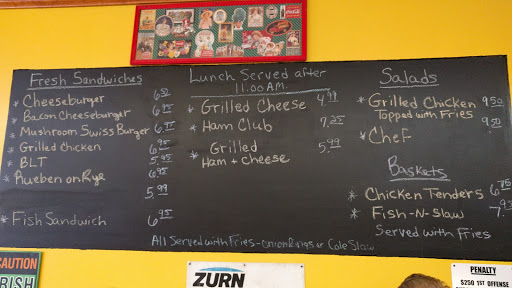 Fresh Sandwiches
* Cheeseburger
* Bacon Cheeseburger 6.95
* Mushroom Swiss Burger 6.95
* Grilled Chicken 6.95
* BLT 5.95
* Rueben on Rye 6.95
5.99
* Fish Sandwich 6.95
Lunch Served after
11:00 A.M.
* Grilled Cheese 4.99
* Ham Club 7.25
* Grilled 5.99
Ham + Cheese
Salads
* Grilled Chicken 9.50
Topped with Fries
* Chef 9.50
Baskets
* Chicken Tenders 6.75
* Fish-N-Slaw 7.95
Served with Fries
All Served with Fries - onion Rings or Cole Slaw
CAUTION
IRISH
ZURN
PENALTY
$250 1ST OFFENSE